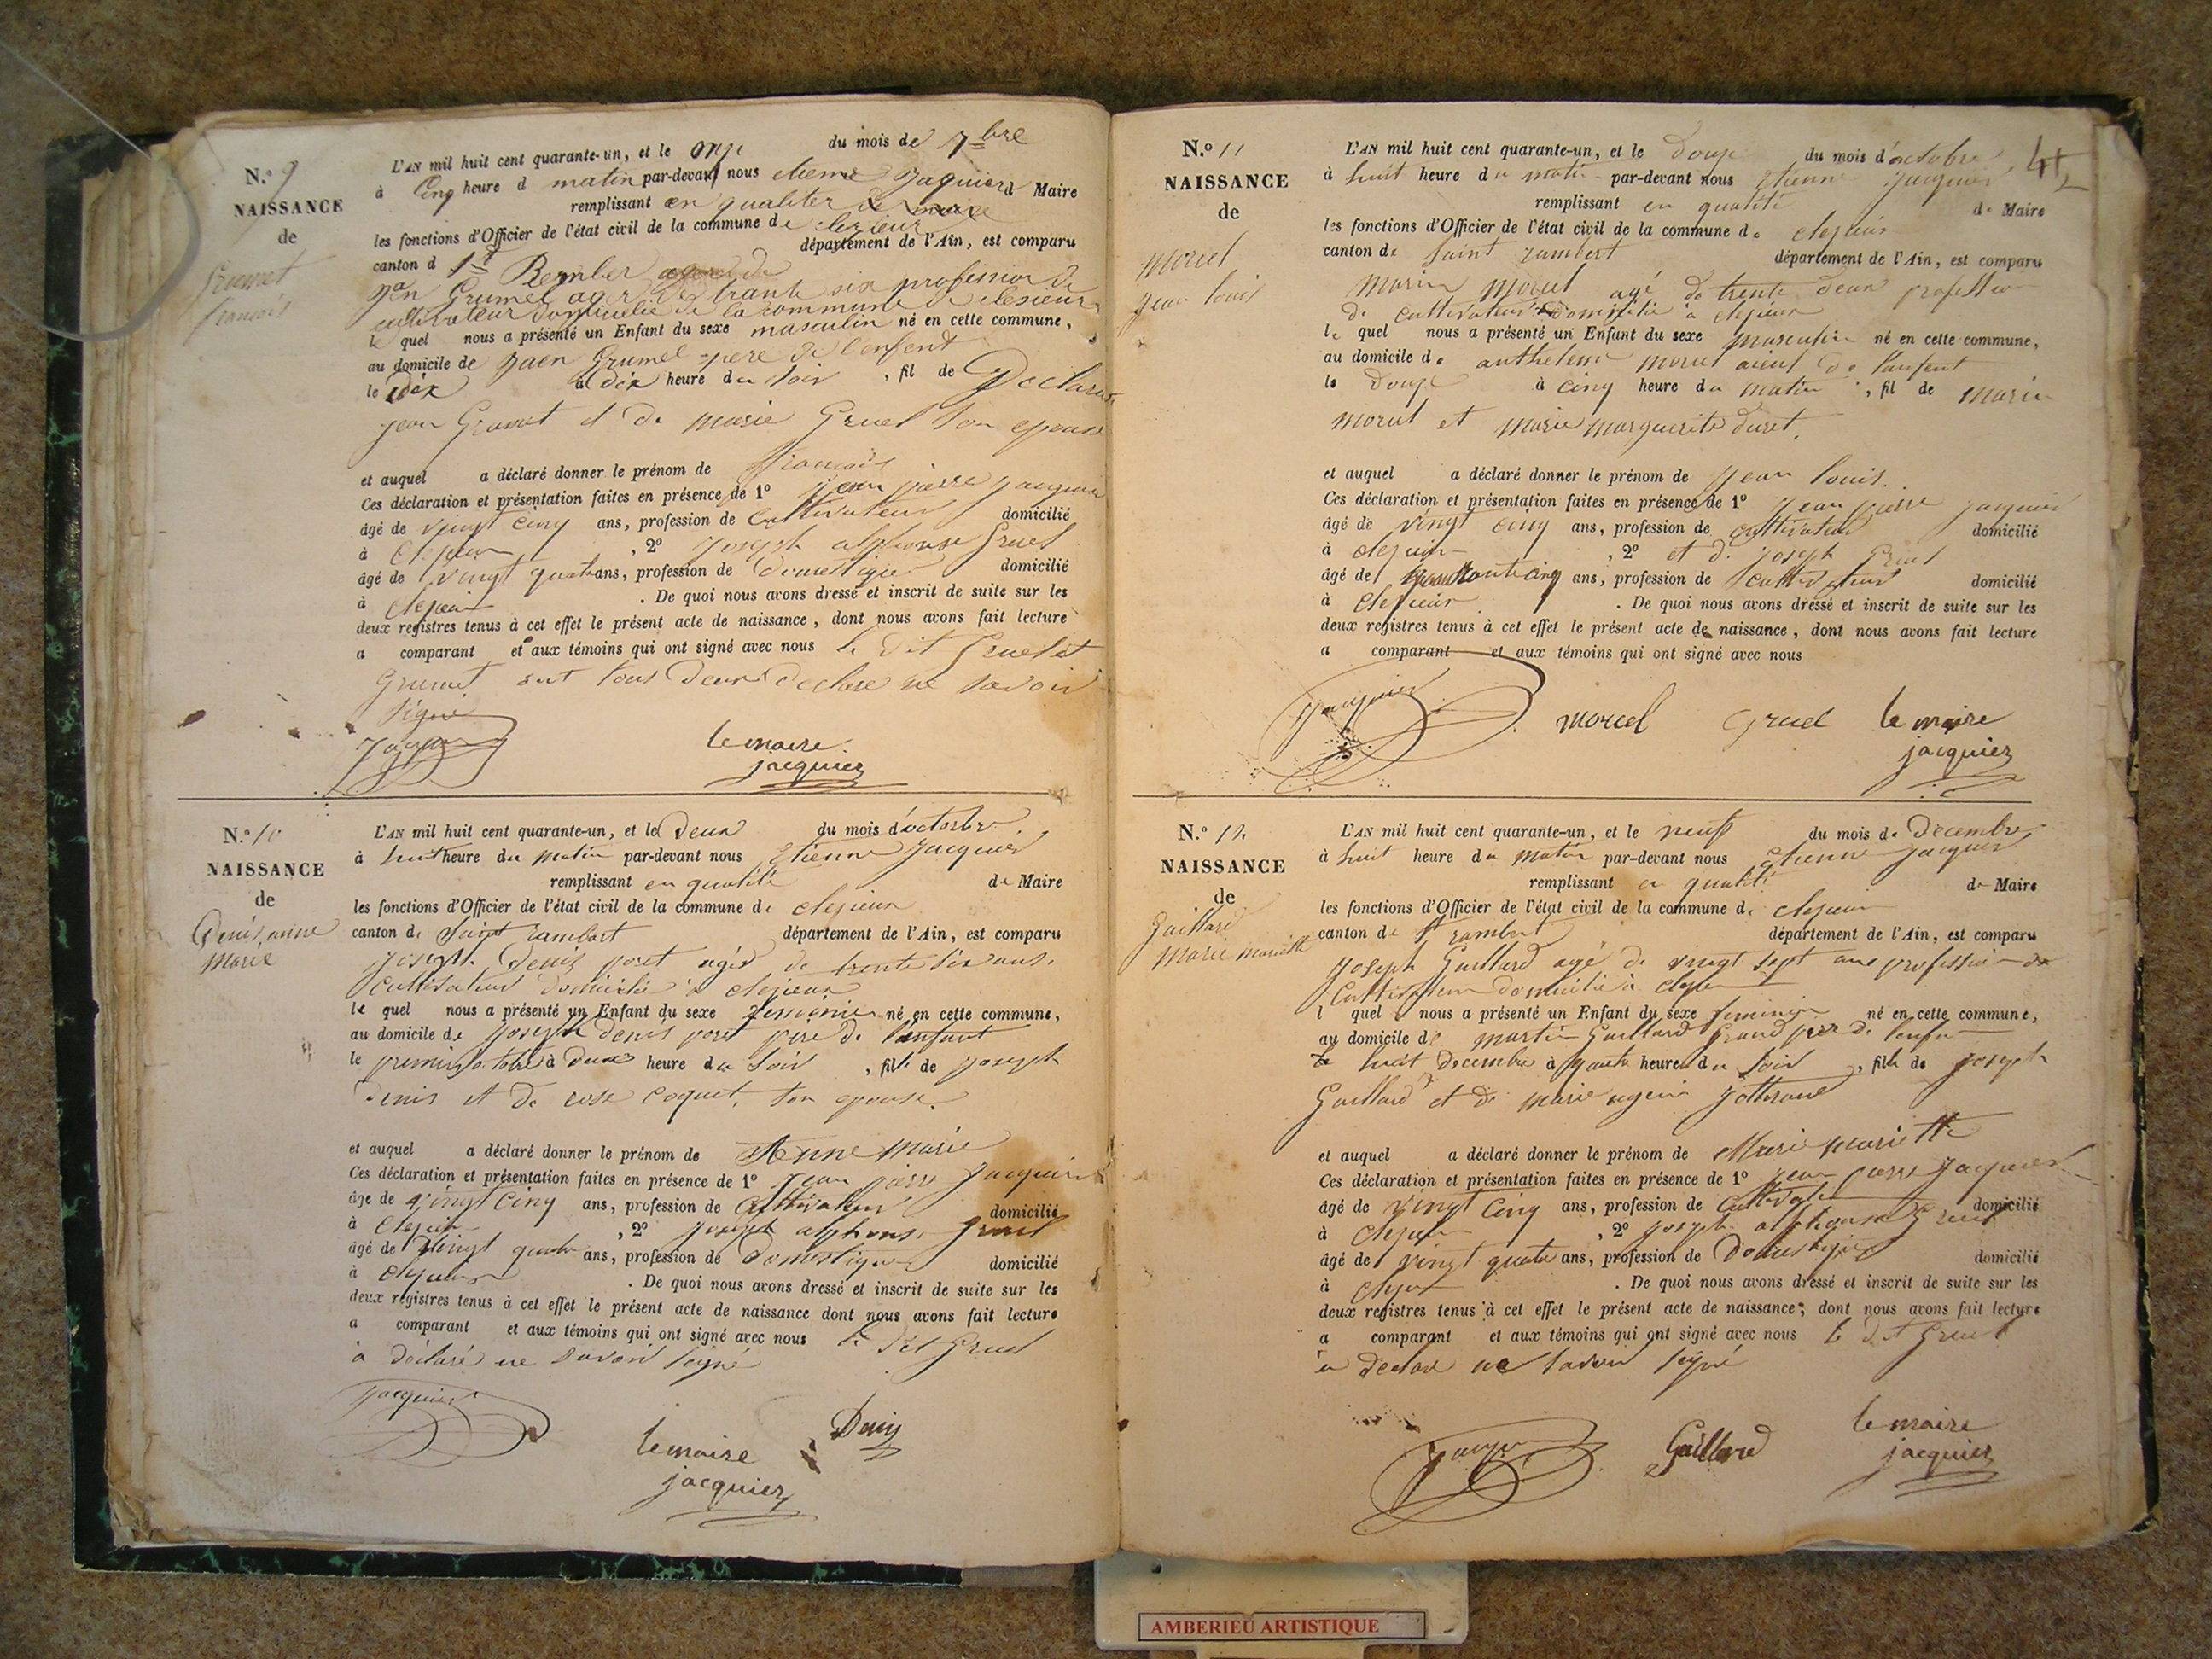 N.º 9
NAISSANCE
de
Grumet
francois
L'AN mil huit cent quarante-un, et le onze du mois de 7bre
à Cinq heure d matin par-devant nous etienne Jaquier d Maire
remplissant en qualiter de maire
les fonctions d'Officier de l'état civil de la commune de clezieur
canton d St Rember département de l'Ain, est comparu
Jan Grumel ager de trante six profession de
cultivateur domicilie de la commune de clesieur
le quel nous a présenté un Enfant du sexe masculin né en cette commune,
au domicile de Jaen Grumel pere de l'enfent
le dix à dix heure du soir , fil de Declarant
jean Grumet et de marie Gruel son epouse
et auquel a déclaré donner le prénom de francois
Ces déclaration et présentation faites en présence de 1º jean pierre jacquier
âgé de vingt cinq ans, profession de cultivateur domicilié
à clezieu , 2º joseph alphonse Gruel
âgé de vingt quatre ans, profession de domestique domicilié
à clezieu . De quoi nous avons dressé et inscrit de suite sur les
deux registres tenus à cet effet le présent acte de naissance, dont nous avons fait lecture
a comparant et aux témoins qui ont signé avec nous le dit Gruel et
Grumet ont tous deux declare ne savoir
signé
le maire
jacquier
N.º 10
NAISSANCE
de
Denis anne
marie
L'AN mil huit cent quarante-un, et le deux du mois d'octobre
à huit heure du matin par-devant nous Etienne Jacquier
remplissant en qualité de Maire
les fonctions d'Officier de l'état civil de la commune de clezieux
canton de Saint rambert département de l'Ain, est comparu
joseph Denis poset agé de trente six ans
cultivateur domicilié à clezieux
le quel nous a présenté un Enfant du sexe feminin né en cette commune,
au domicile de joseph denis poset père de l'enfant
le premier octobre à deux heure du soir , fille de joseph
denis et de rose coquet, son epouse
et auquel a déclaré donner le prénom de Anne marie
Ces déclaration et présentation faites en présence de 1º jean pierre jacquier
âge de vingt cinq ans, profession de cultivateur domicilié
à clezieu , 2º joseph alphonse Gruel
âgé de vingt quatre ans, profession de domestique domicilié
à clezieux . De quoi nous avons dressé et inscrit de suite sur les
deux registres tenus à cet effet le présent acte de naissance dont nous avons fait lecture
a comparant et aux témoins qui ont signé avec nous le dit Gruel
a déclaré ne savoir signé
jacquier
le maire
jacquier
Denis
42
N.º 11
NAISSANCE
de
morel
jean louis
L'AN mil huit cent quarante-un, et le douze du mois d'octobre
à huit heure du matin par-devant nous Etienne Jacquier
remplissant en qualité de Maire
les fonctions d'Officier de l'état civil de la commune de clezieux
canton de Saint rambert département de l'Ain, est comparu
marin morel agé de trente deux profession
de cultivateur domicilié à clezieux
le quel nous a présenté un Enfant du sexe masculin né en cette commune,
au domicile de anthelme morel aieul de l'enfent
le douze à cinq heure du matin , fil de marin
morel et marie marguerite duret.
et auquel a déclaré donner le prénom de jean louis.
Ces déclaration et présentation faites en présence de 1º jean pierre jacquier
âgé de vingt cinq ans, profession de cultivateur domicilié
à clezieu , 2º et d. joseph Gruel
âgé de quarante cinq ans, profession de cultivateur domicilié
à clezieux . De quoi nous avons dressé et inscrit de suite sur les
deux registres tenus à cet effet le présent acte de naissance, dont nous avons fait lecture
a comparant et aux témoins qui ont signé avec nous
jacquier
morel
Gruel
le maire
jacquier
N.º 12
NAISSANCE
de
Gaillard
marie mariette
L'AN mil huit cent quarante-un, et le neuf du mois de Decembre
à huit heure du matin par-devant nous etienne jacquier
remplissant en qualité de Maire
les fonctions d'Officier de l'état civil de la commune de clezieu
canton de St rambert département de l'Ain, est comparu
joseph Gaillard agé de vingt sept ans profession de
cultivateur domicilié à clezieu
l quel nous a présenté un Enfant du sexe feminin né en cette commune,
au domicile de martin Gaillard Grand pere de l'enfan
le huit decembre à quatre heure du soir , fille de joseph
Gaillard et de marie
et auquel a déclaré donner le prénom de Marie mariette
Ces déclaration et présentation faites en présence de 1º jean pierre jacquier
âgé de vingt cinq ans, profession de cultivateur domicilié
à clezieu , 2º joseph alphonse Gruel
âgé de vingt quatre ans, profession de domestique domicilié
à . De quoi nous avons dressé et inscrit de suite sur les
deux registres tenus à cet effet le présent acte de naissance, dont nous avons fait lecture
a comparant et aux témoins qui ont signé avec nous le dit Gruel
a declaré ne savoir signé
Gaillard
le maire
jacquier
AMBERIEU ARTISTIQUE